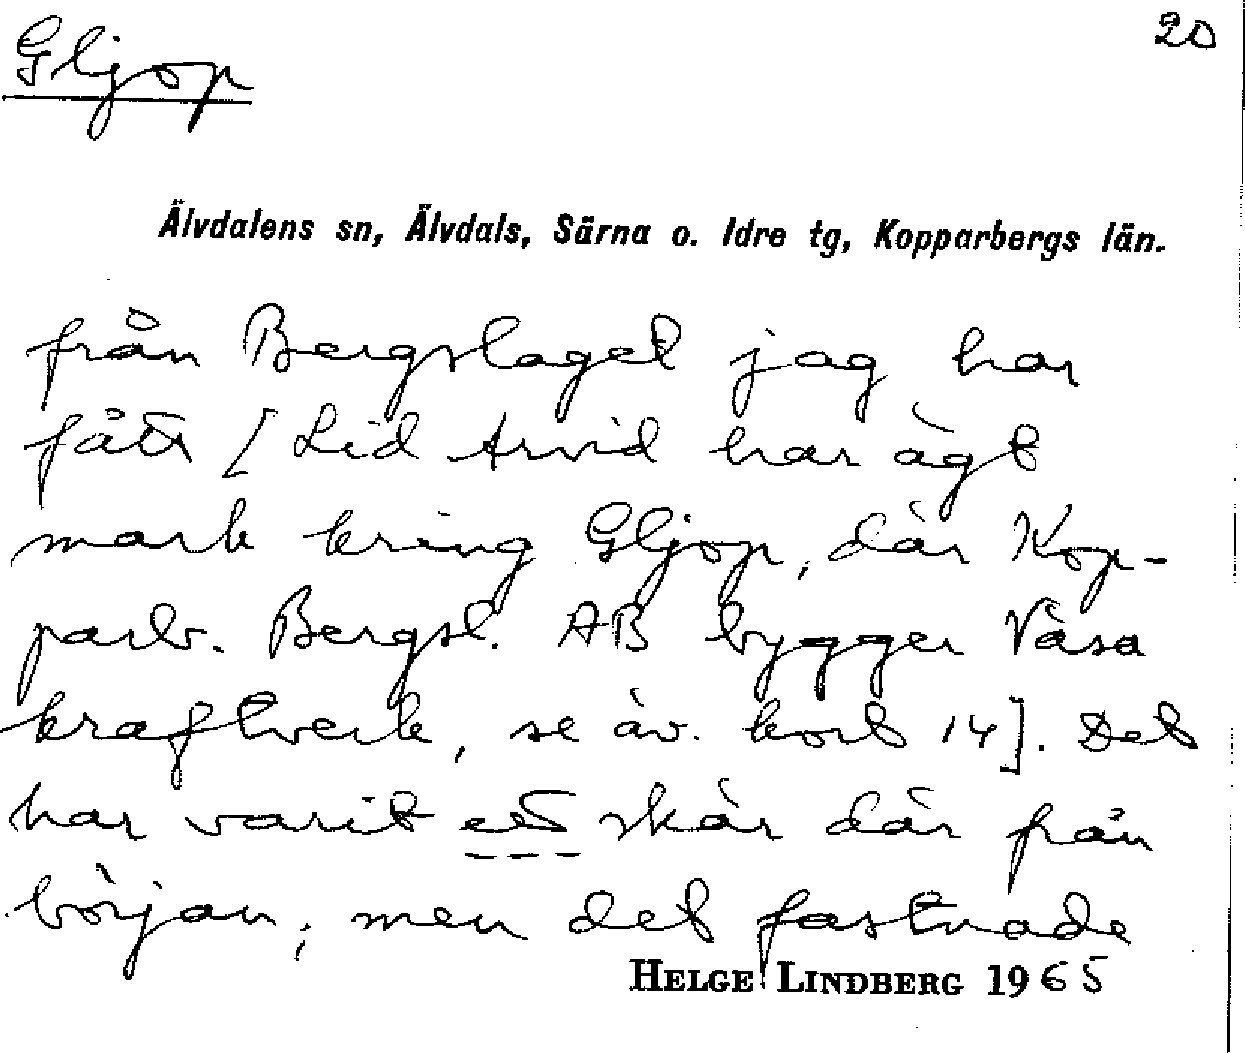 20
Gljop
Älvdalens sn, Älvdals, Särna o. Idre tg, Kopparbergs län.
från Bergslaget jag har
fått [Lid Arvid har ägt
mark kring Gljop, där Kop-
parb. Bergsl. AB bygger Våsa
kraftverk, se äv. kort 14]. Det
har varit ett skär där från
början; men det fastnade
HELGE LINDBERG 1965